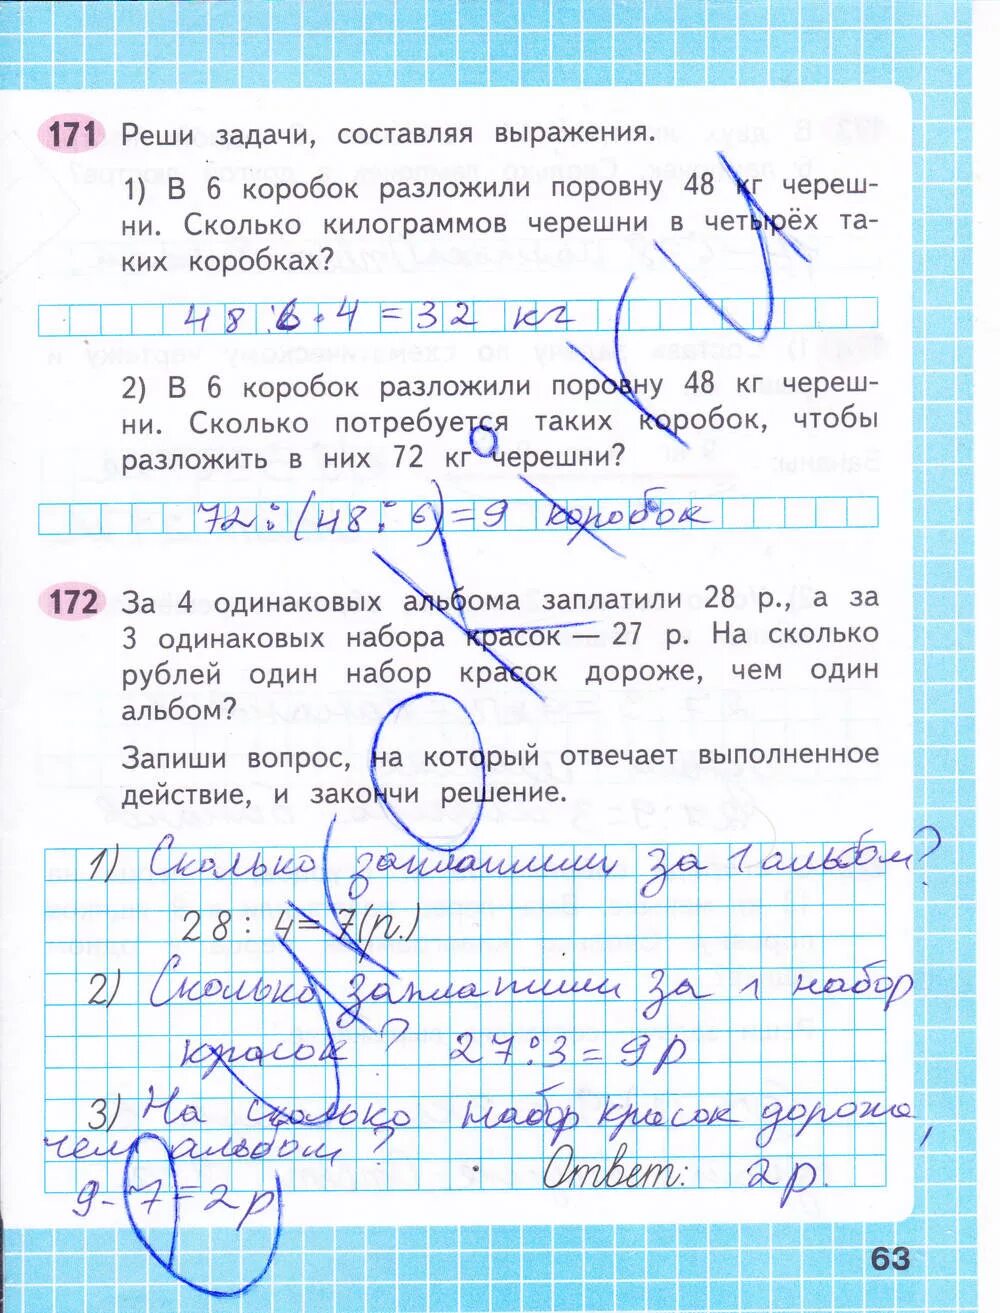 171 Реши задачи, составляя выражения.
1) В 6 коробок разложили поровну 48 кг череш-
ни. Сколько килограммов черешни в четырёх та-
ких коробках?
48:6·4=32 кг
2) В 6 коробок разложили поровну 48 кг череш-
ни. Сколько потребуется таких коробок, чтобы
разложить в них 72 кг черешни?
72:(48:6)=9 коробок
172 За 4 одинаковых альбома заплатили 28 р., а за
3 одинаковых набора красок — 27 р. На сколько
рублей один набор красок дороже, чем один
альбом?
Запиши вопрос, на который отвечает выполненное
действие, и закончи решение.
1) Сколько заплатили за 1 альбом?
28 : 4 = 7 (р.)
2) Сколько заплатили за 1 набор
красок? 27:3=9р
3) На сколько набор красок дороже,
чем альбом?
Ответ: 2р.
9-7=2р
63